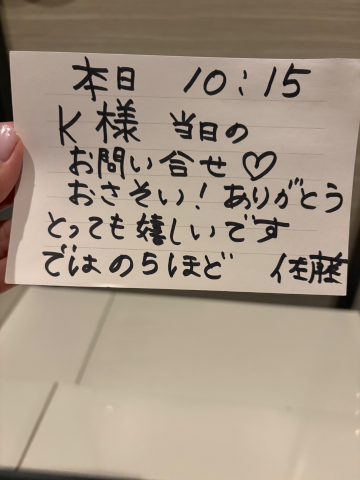 本日 10:15
K様 当日の
お問い合せ♡
おさそい！ありがとう
とっても嬉しいです
ではのちほど 佐藤